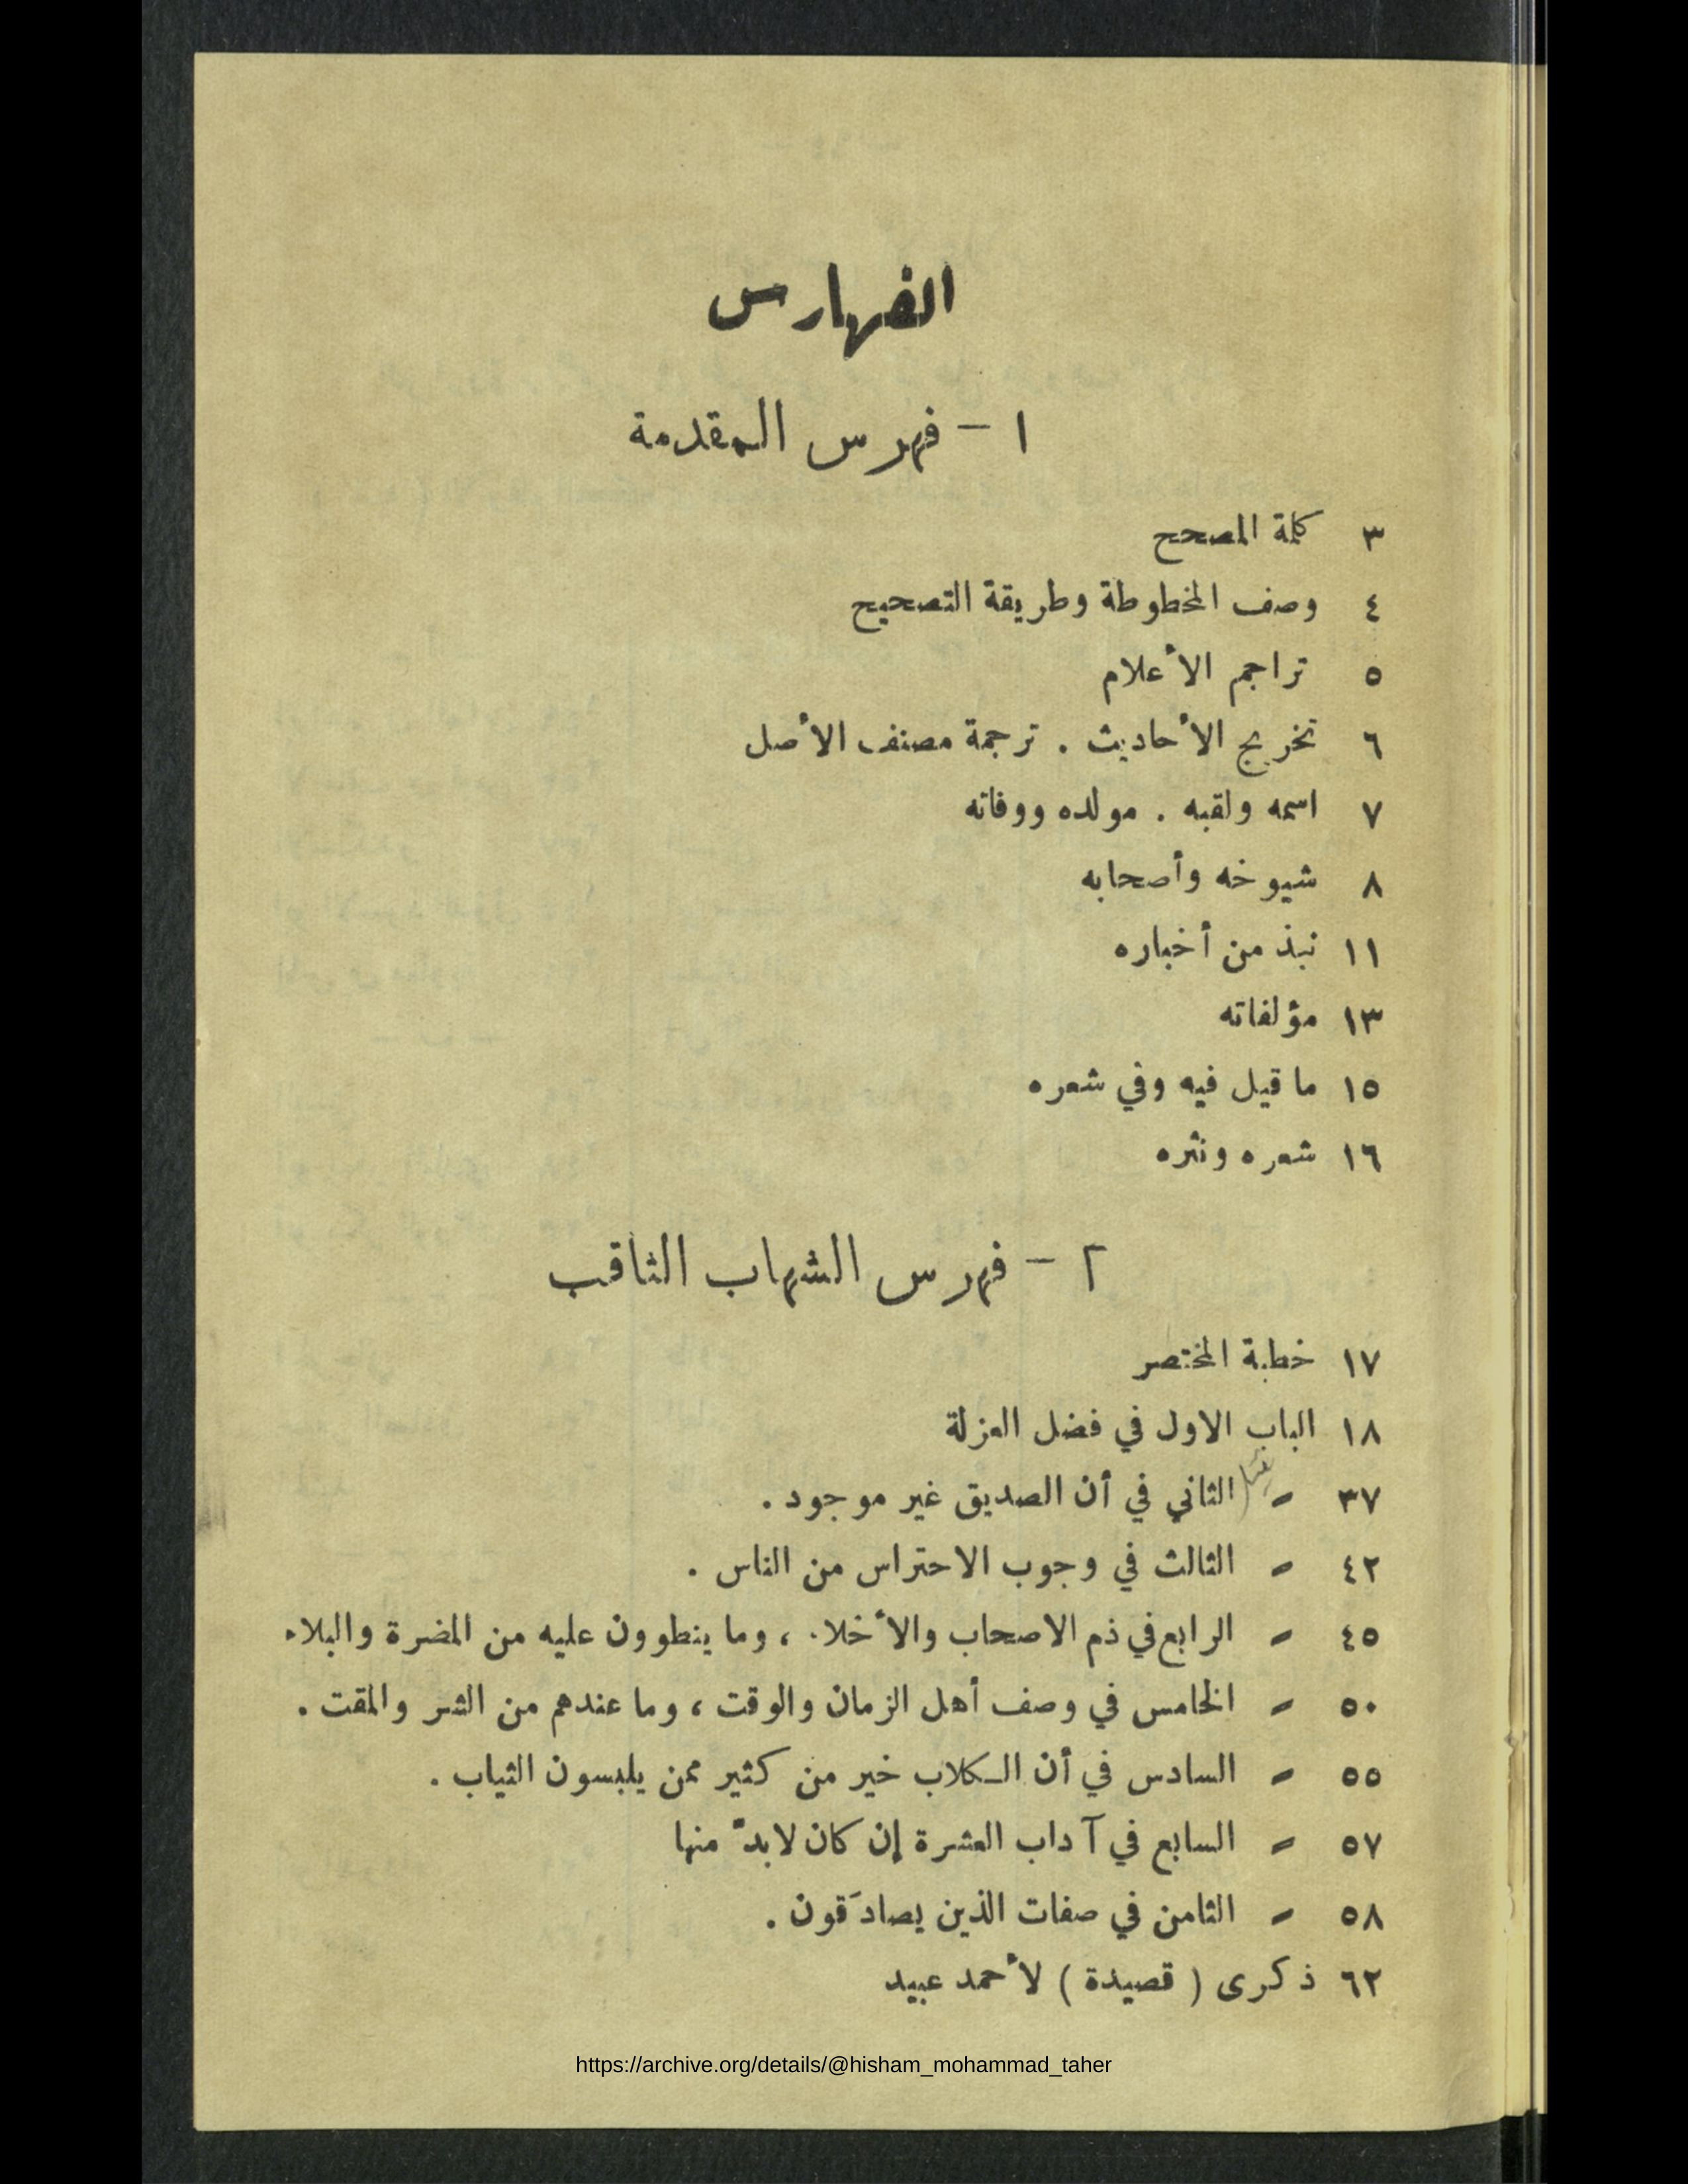 الفهارس
١ – فهرس المقدمة
٣ كلمة المصحح
٤ وصف المخطوطة وطريقة التصحيح
٥ تراجم الأعلام
٦ تخريج الأحاديث . ترجمة مصنف الأصل
٧ اسمه ولقبه . مولده ووفاته
٨ شيوخه وأصحابه
١١ نبذ من أخباره
١٣ مؤلفاته
١٥ ما قيل فيه وفي شعره
١٦ شعره ونثره
٢ – فهرس الشهاب الثاقب
١٧ خطبة المختصر
١٨ الباب الاول في فضل العزلة
٣٧ - الثاني في أن الصديق غير موجود .
٤٢ - الثالث في وجوب الاحتراس من الناس .
٤٥ - الرابع في ذم الاصحاب والأخلاء ، وما ينطوون عليه من المضرة والبلاء
٥٠ - الخامس في وصف أهل الزمان والوقت ، وما عندهم من الشر والمقت .
٥٥ - السادس في أن الكلاب خير من كثير ممن يلبسون الثياب .
٥٧ - السابع في آداب العشرة إن كان لابدّ منها
٥٨ - الثامن في صفات الذين يصادَقون .
٦٢ ذكرى ( قصيدة ) لأحمد عبيد
https://archive.org/details/@hisham_mohammad_taher